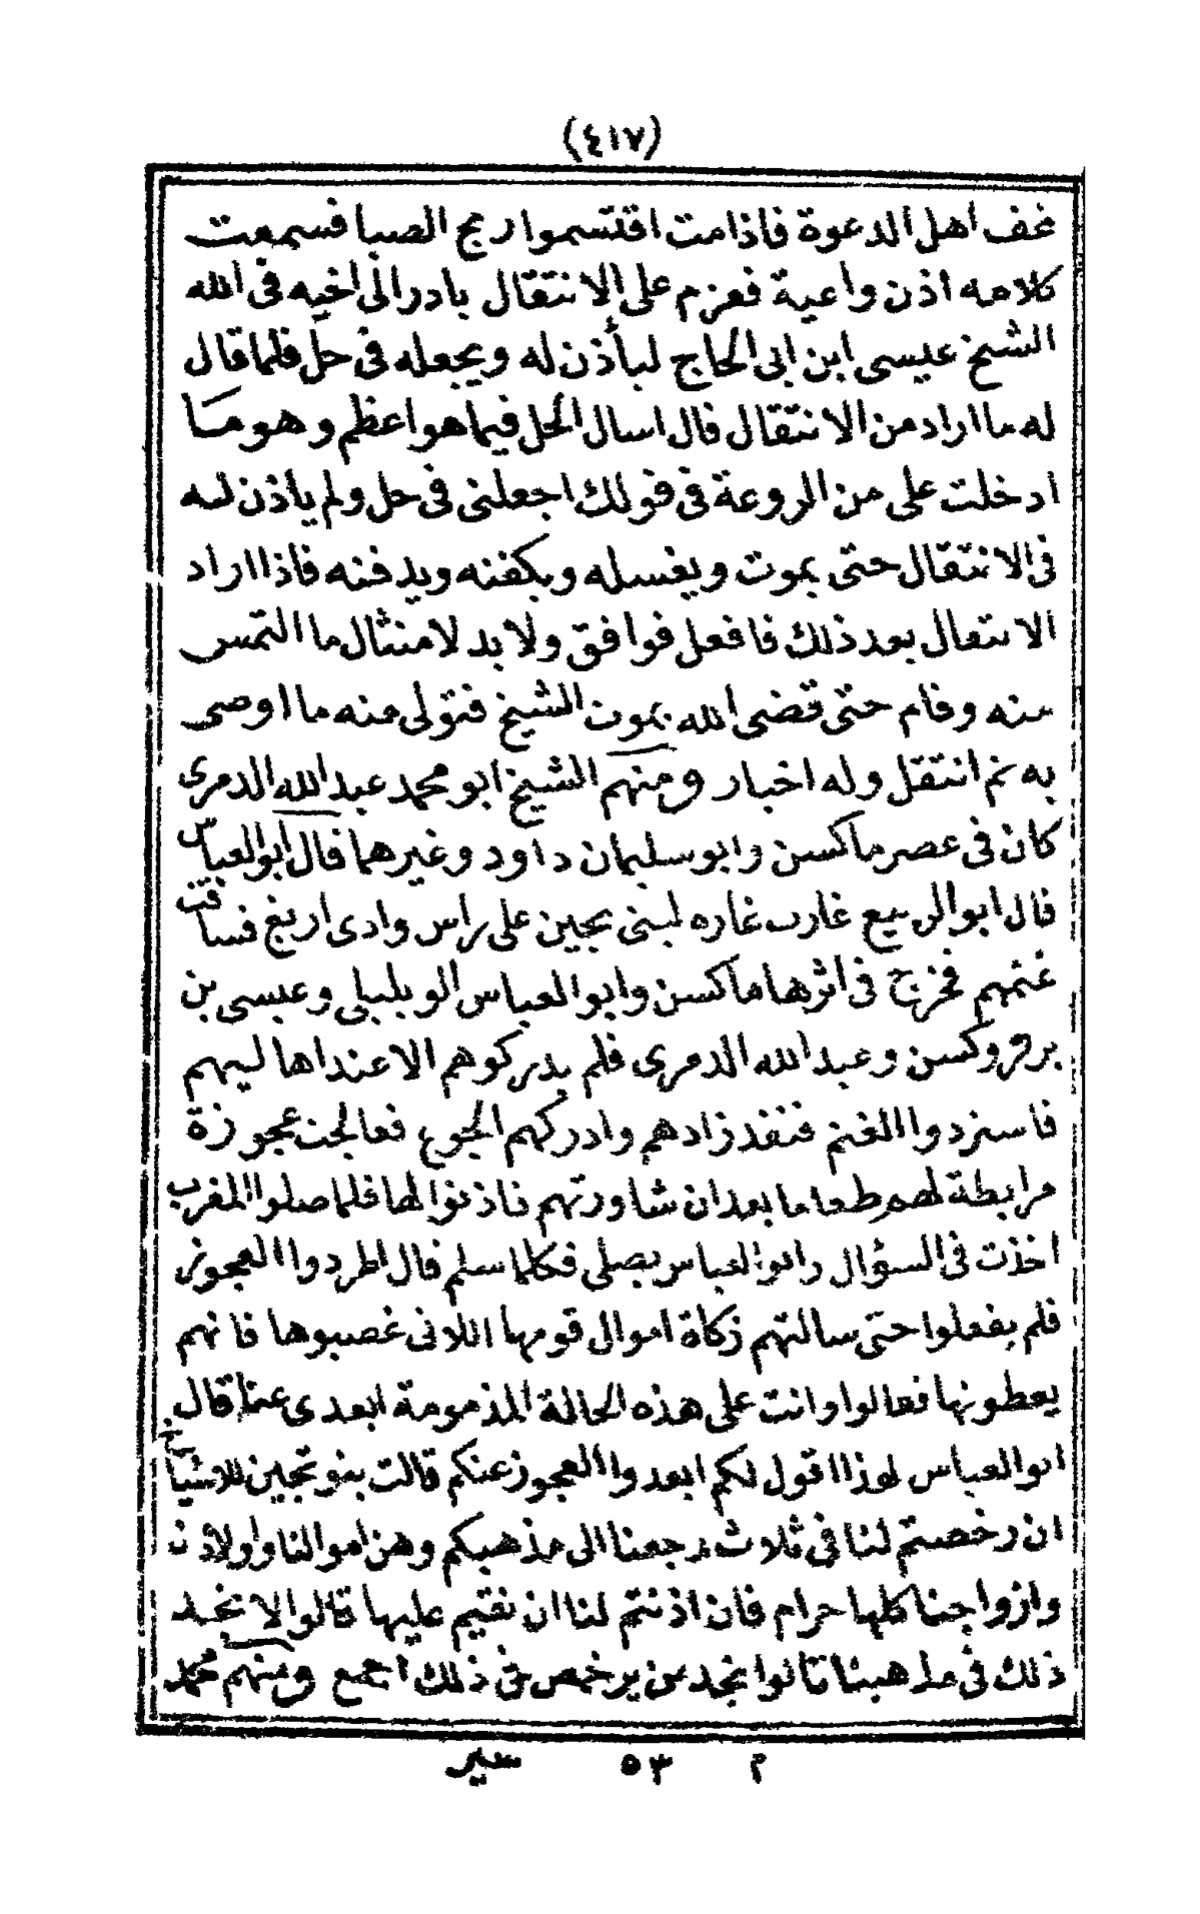 (٤١٧)
نحف اهل الدعوة فاذا مت اقتسموا ريح الصبا فسمعت
كلامه اذن واعية فعزم على الانتقال بادر الى اخيه فى الله
الشيخ عيسى ابن ابى الحاج ليأذن له ويجعله فى حل فلما قال
له ما اراد من الانتقال قال اسال الحل فيما هو اعظم وهو ما
ادخلت على من الروعة فى قولك اجعلنى فى حل ولم ياذن له
فى الانتقال حتى يموت ويغسله ويكفنه ويدفنه فاذا اراد
الانتقال بعد ذلك فافعل فوافق ولا بد لامتثال ما التمس
منه وقام حتى قضى الله بموت الشيخ فتولى منه ما اوصى
به ثم انتقل وله اخبار ومنهم الشيخ ابو محمد عبد الله الدمرى
كان فى عصر ماكسن وابو سليمان داود وغيرهما قال ابو العباس
قال ابو الربيع غارت غاره لبنى يجين على راس وادى اريغ فساقت
غنمهم فخرج فى اثرها ماكسن وابو العباس الويليلى وعيسى بن
يرفروكسن وعبد الله الدمرى فلم يدركوهم الا عند اهاليهم
فاستردوا الغنم فنفد زادهم وادركهم الجوع فعالجت عجوزة
مرابطة لهم طعاما بعد ان شاورتهم فاذنوا لها فلما صلوا المغرب
اخذت فى السؤال وابو العباس يصلى فكلما سلم قال اطردوا العجوز
فلم يفعلوا حتى سالتهم زكاة اموال قومها اللاتى غصبوها فانهم
يعطونها فقالوا وانت على هذه الحالة المذمومة ابعدى عنا قال
ابو العباس لهذا اقول لكم ابعدوا العجوز عنكم قالت بنو تجين للاشياخ
ان رخصتم لنا فى ثلاث رجعنا الى مذهبكم وهن اموالنا واولادنا
وازواجنا كلها حرام فان اذنتم لنا ان نقيم عليها قالوا لا نجد
ذلك فى مذهبنا قالوا نجد من يرخص فى ذلك اجمع ومنهم محمد
م ٥٣ سير